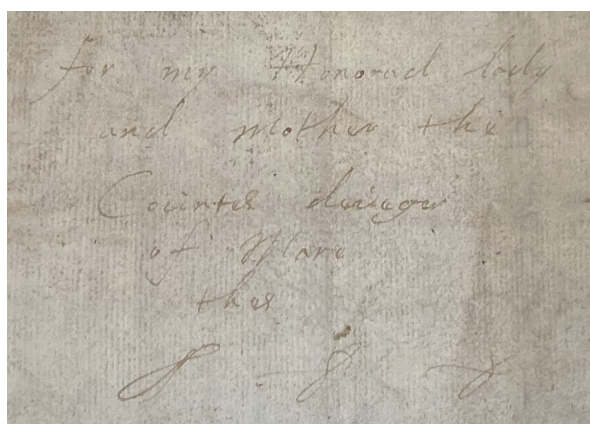 for my Honored lady
and mother the
Countes
of Marr
thes